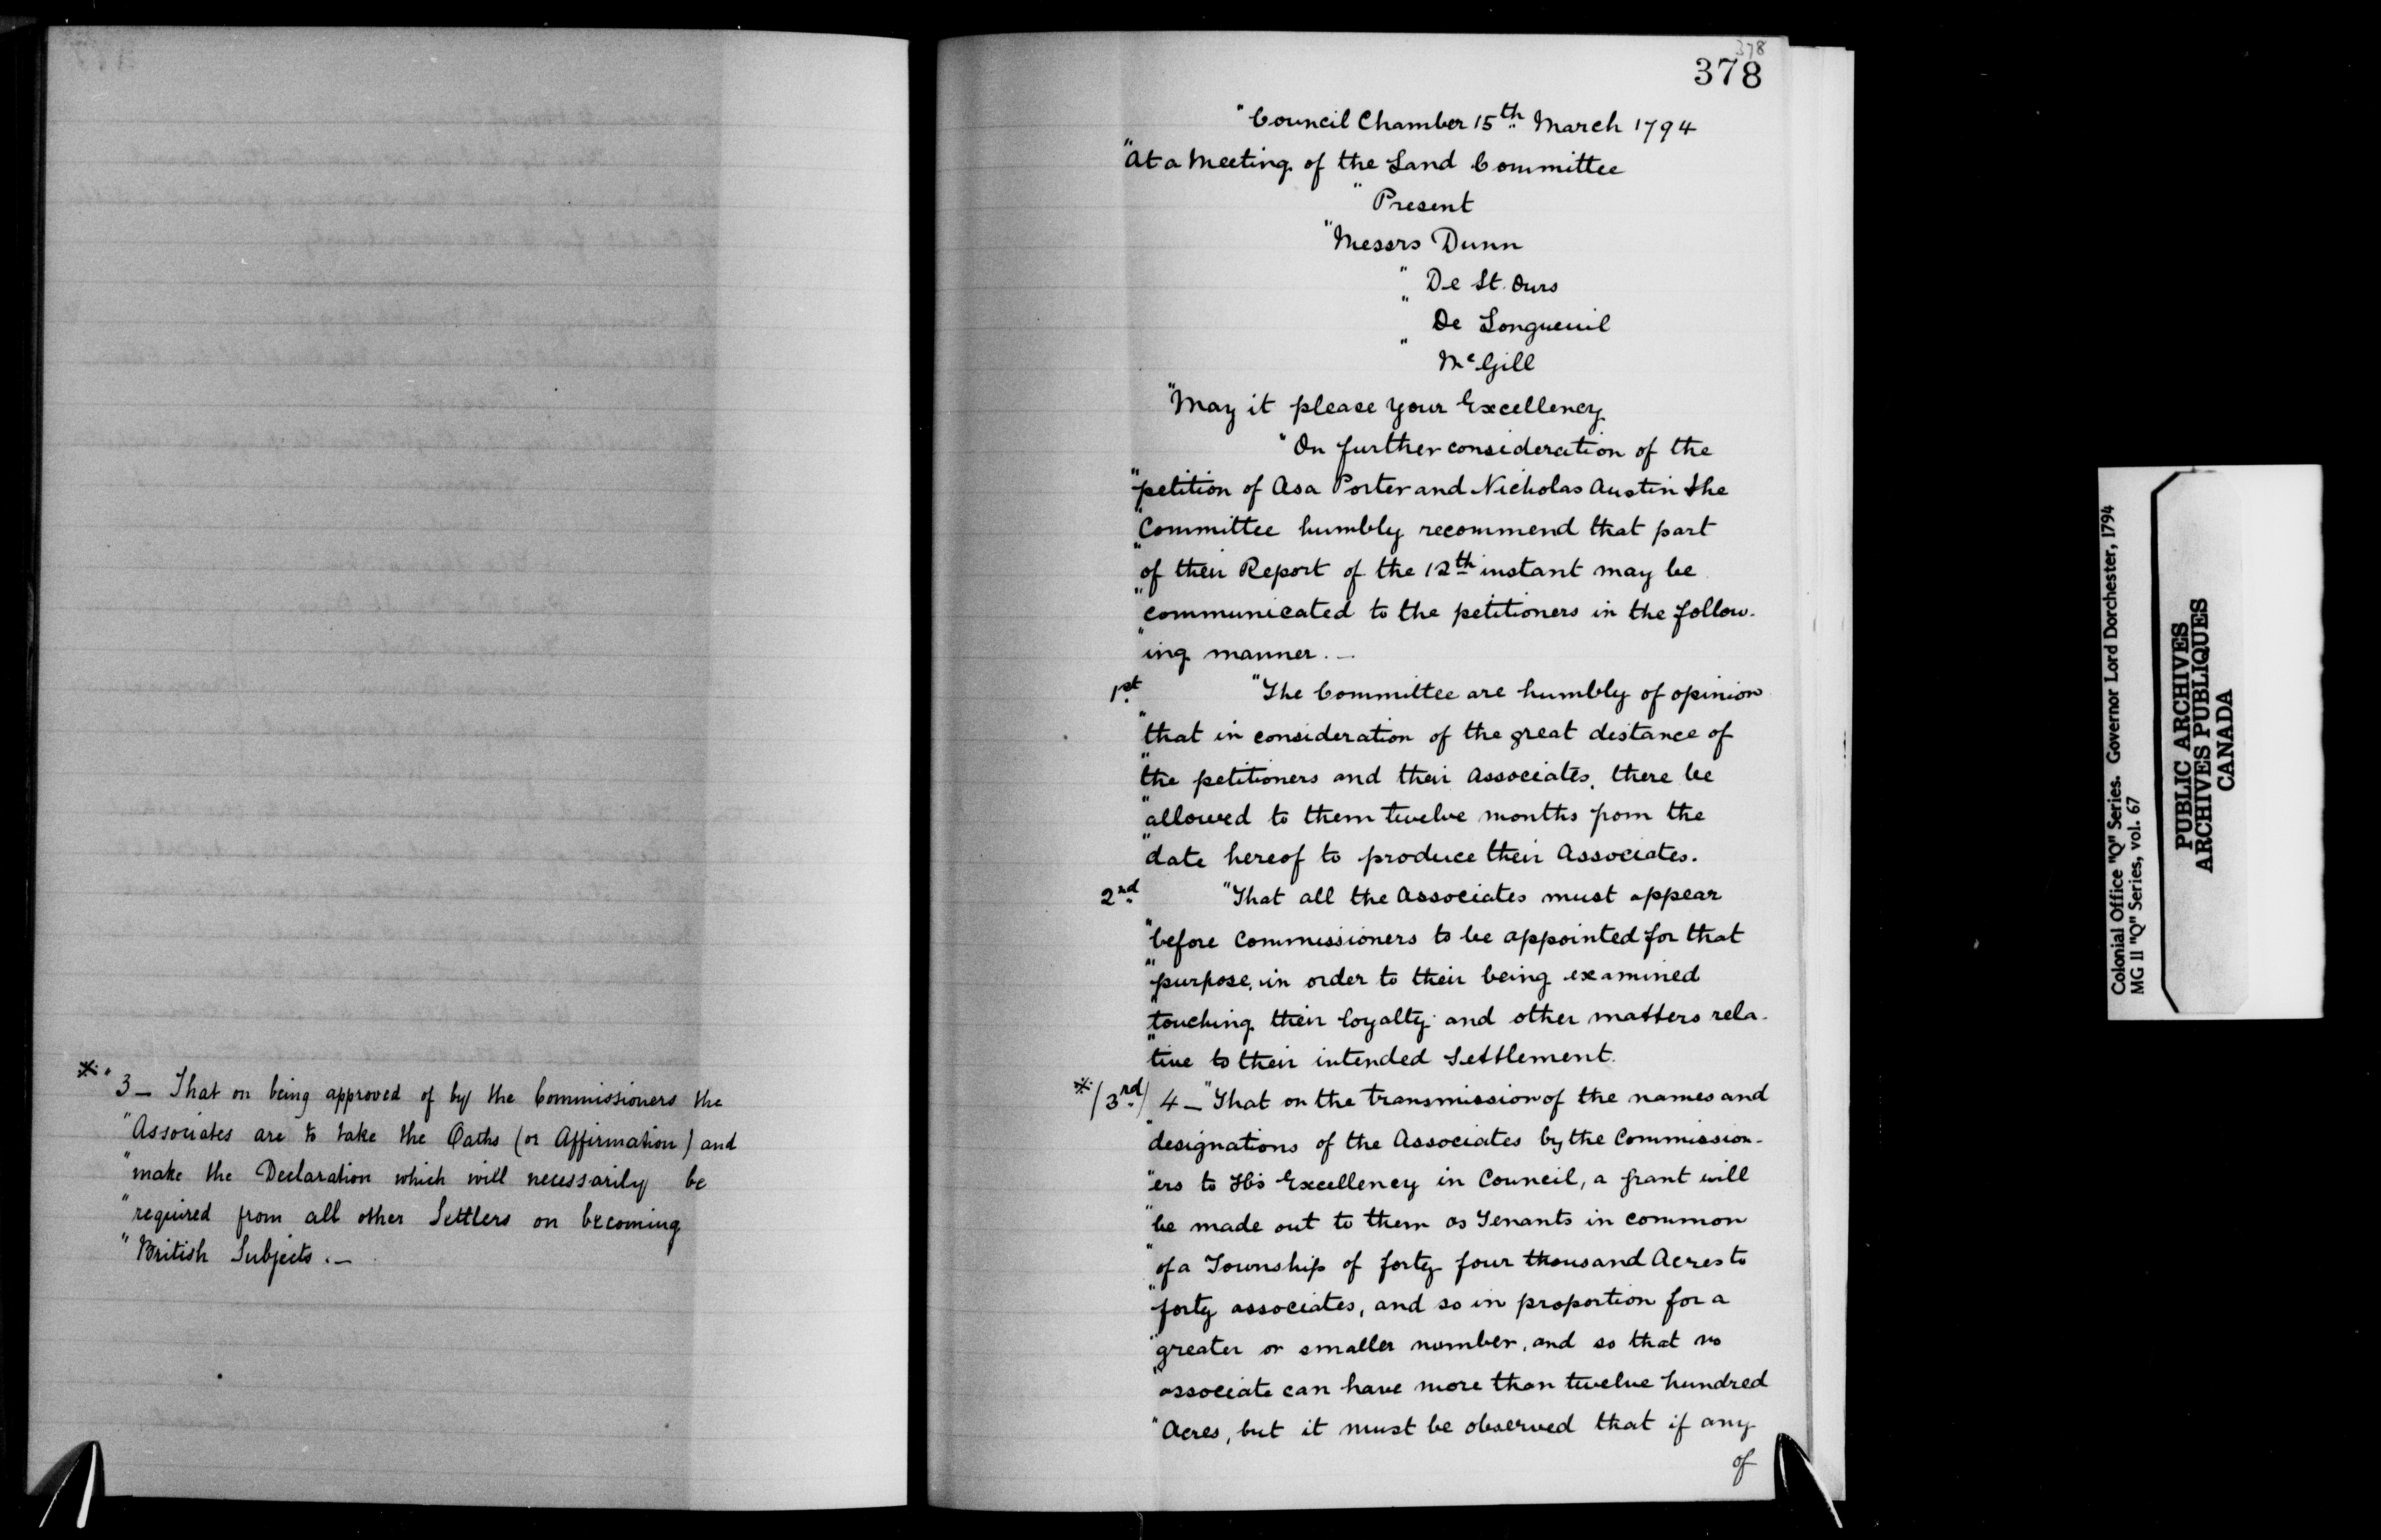 ※ " 3 — That on being approved of by the Commissioners the
" Associates are to take the Oaths (or Affirmation) and
" make the Declaration which will necessarily be
" required from all other Settlers on becoming
" British Subjects. —
378
378
" Council Chamber 15th March 1794
" At a Meeting of the Land Committee
" Present
" Messrs Dunn
" De St. Ours
" De Longueuil
" McGill
" May it please your Excellency
" On further consideration of the
" petition of Asa Porter and Nicholas Austin the
" Committee humbly recommend that part
" of their Report of the 12th instant may be
" communicated to the petitioners in the follow-
" ing manner. —
1st " The Committee are humbly of opinion
" that in consideration of the great distance of
" the petitioners and their Associates, there be
" allowed to them twelve months from the
" date hereof to produce their Associates.
2nd " That all the Associates must appear
" before Commissioners to be appointed for that
" purpose, in order to their being examined
" touching their loyalty and other matters rela-
" tive to their intended Settlement.
※ /3rd/ 4 — " That on the transmission of the names and
" designations of the Associates by the Commission-
" ers to His Excellency in Council, a grant will
" be made out to them as Tenants in common
" of a Township of forty four thousand Acres to
" forty associates, and so in proportion for a
" greater or smaller number, and so that no
" associate can have more than twelve hundred
" Acres, but it must be observed that if any
of
Colonial Office "Q" Series. Governor Lord Dorchester, 1794
MG 11 "Q" Series, vol. 67
PUBLIC ARCHIVES
ARCHIVES PUBLIQUES
CANADA